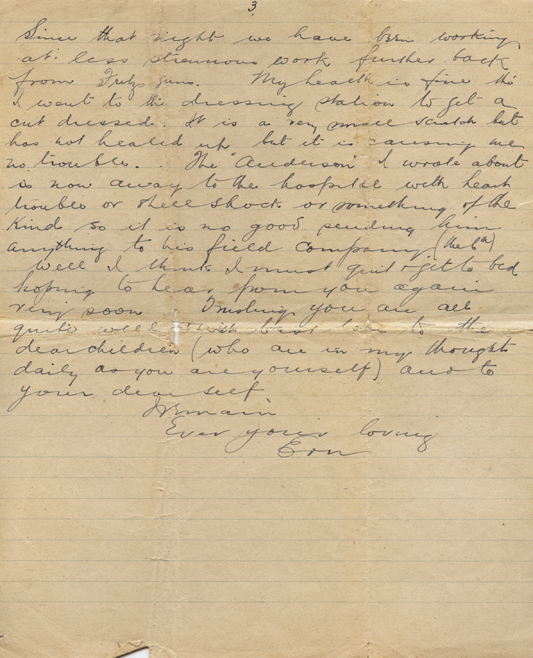 3
Since that night we have been working
at less strenuous work further back
from Fritz guns. My health is fine tho
I went to the dressing station to get a
cut dressed. It is a very small scratch but
has not healed up but it is causing me
no trouble. . The "Anderson" I wrote about
is now away to the hospital with heart
trouble or shell shock or something of the
kind so it is no good sending him
anything to his field company (the 6th)
Well I think I must quit & get to bed
hoping to hear from you again
very soon Trusting you are all
quite well with best to the
dear children (who are in my thoughts
daily as you are yourself) and to
your dear self
I remain
Ever your loving